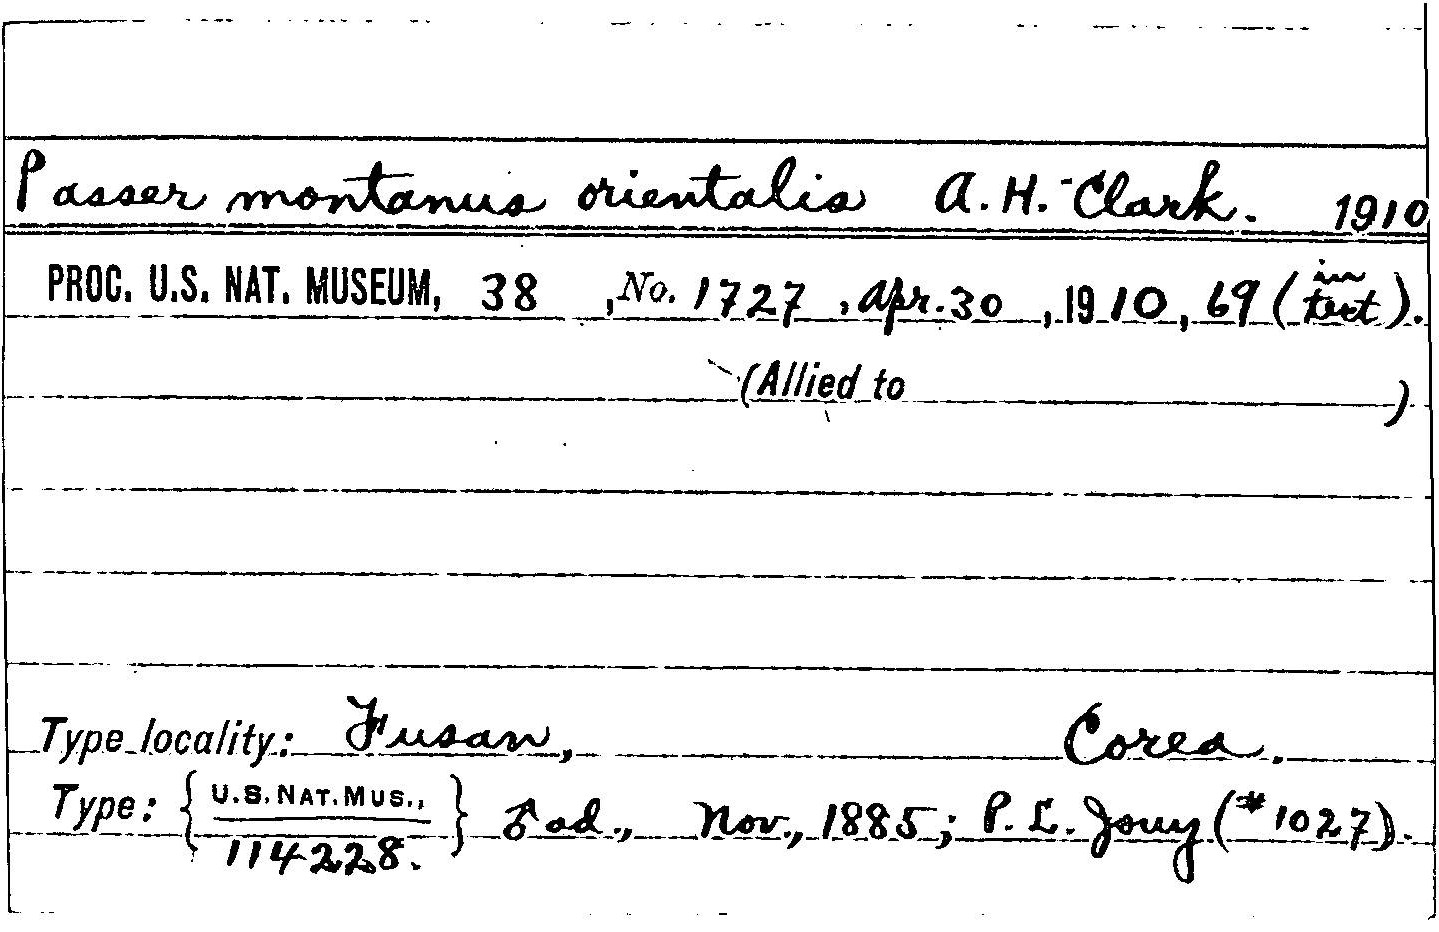 Passer montanus orientalis A. H. Clark. 1910
PROC. U.S. NAT. MUSEUM, 38, No. 1727, Apr. 30, 1910, 69 (in text).
(Allied to )
Type locality: Fusan, Corea.
Type: { U.S. NAT. MUS., } ♂ ad., Nov., 1885; P. L. Jouy (#1027).
114228.